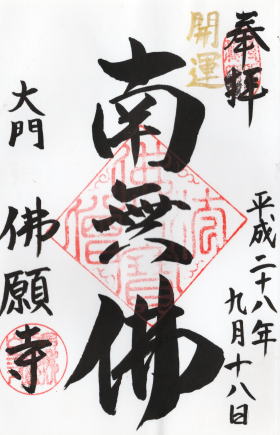 奉拝
開運
平成二十八年
九月十八日
南無佛
大門
佛願寺